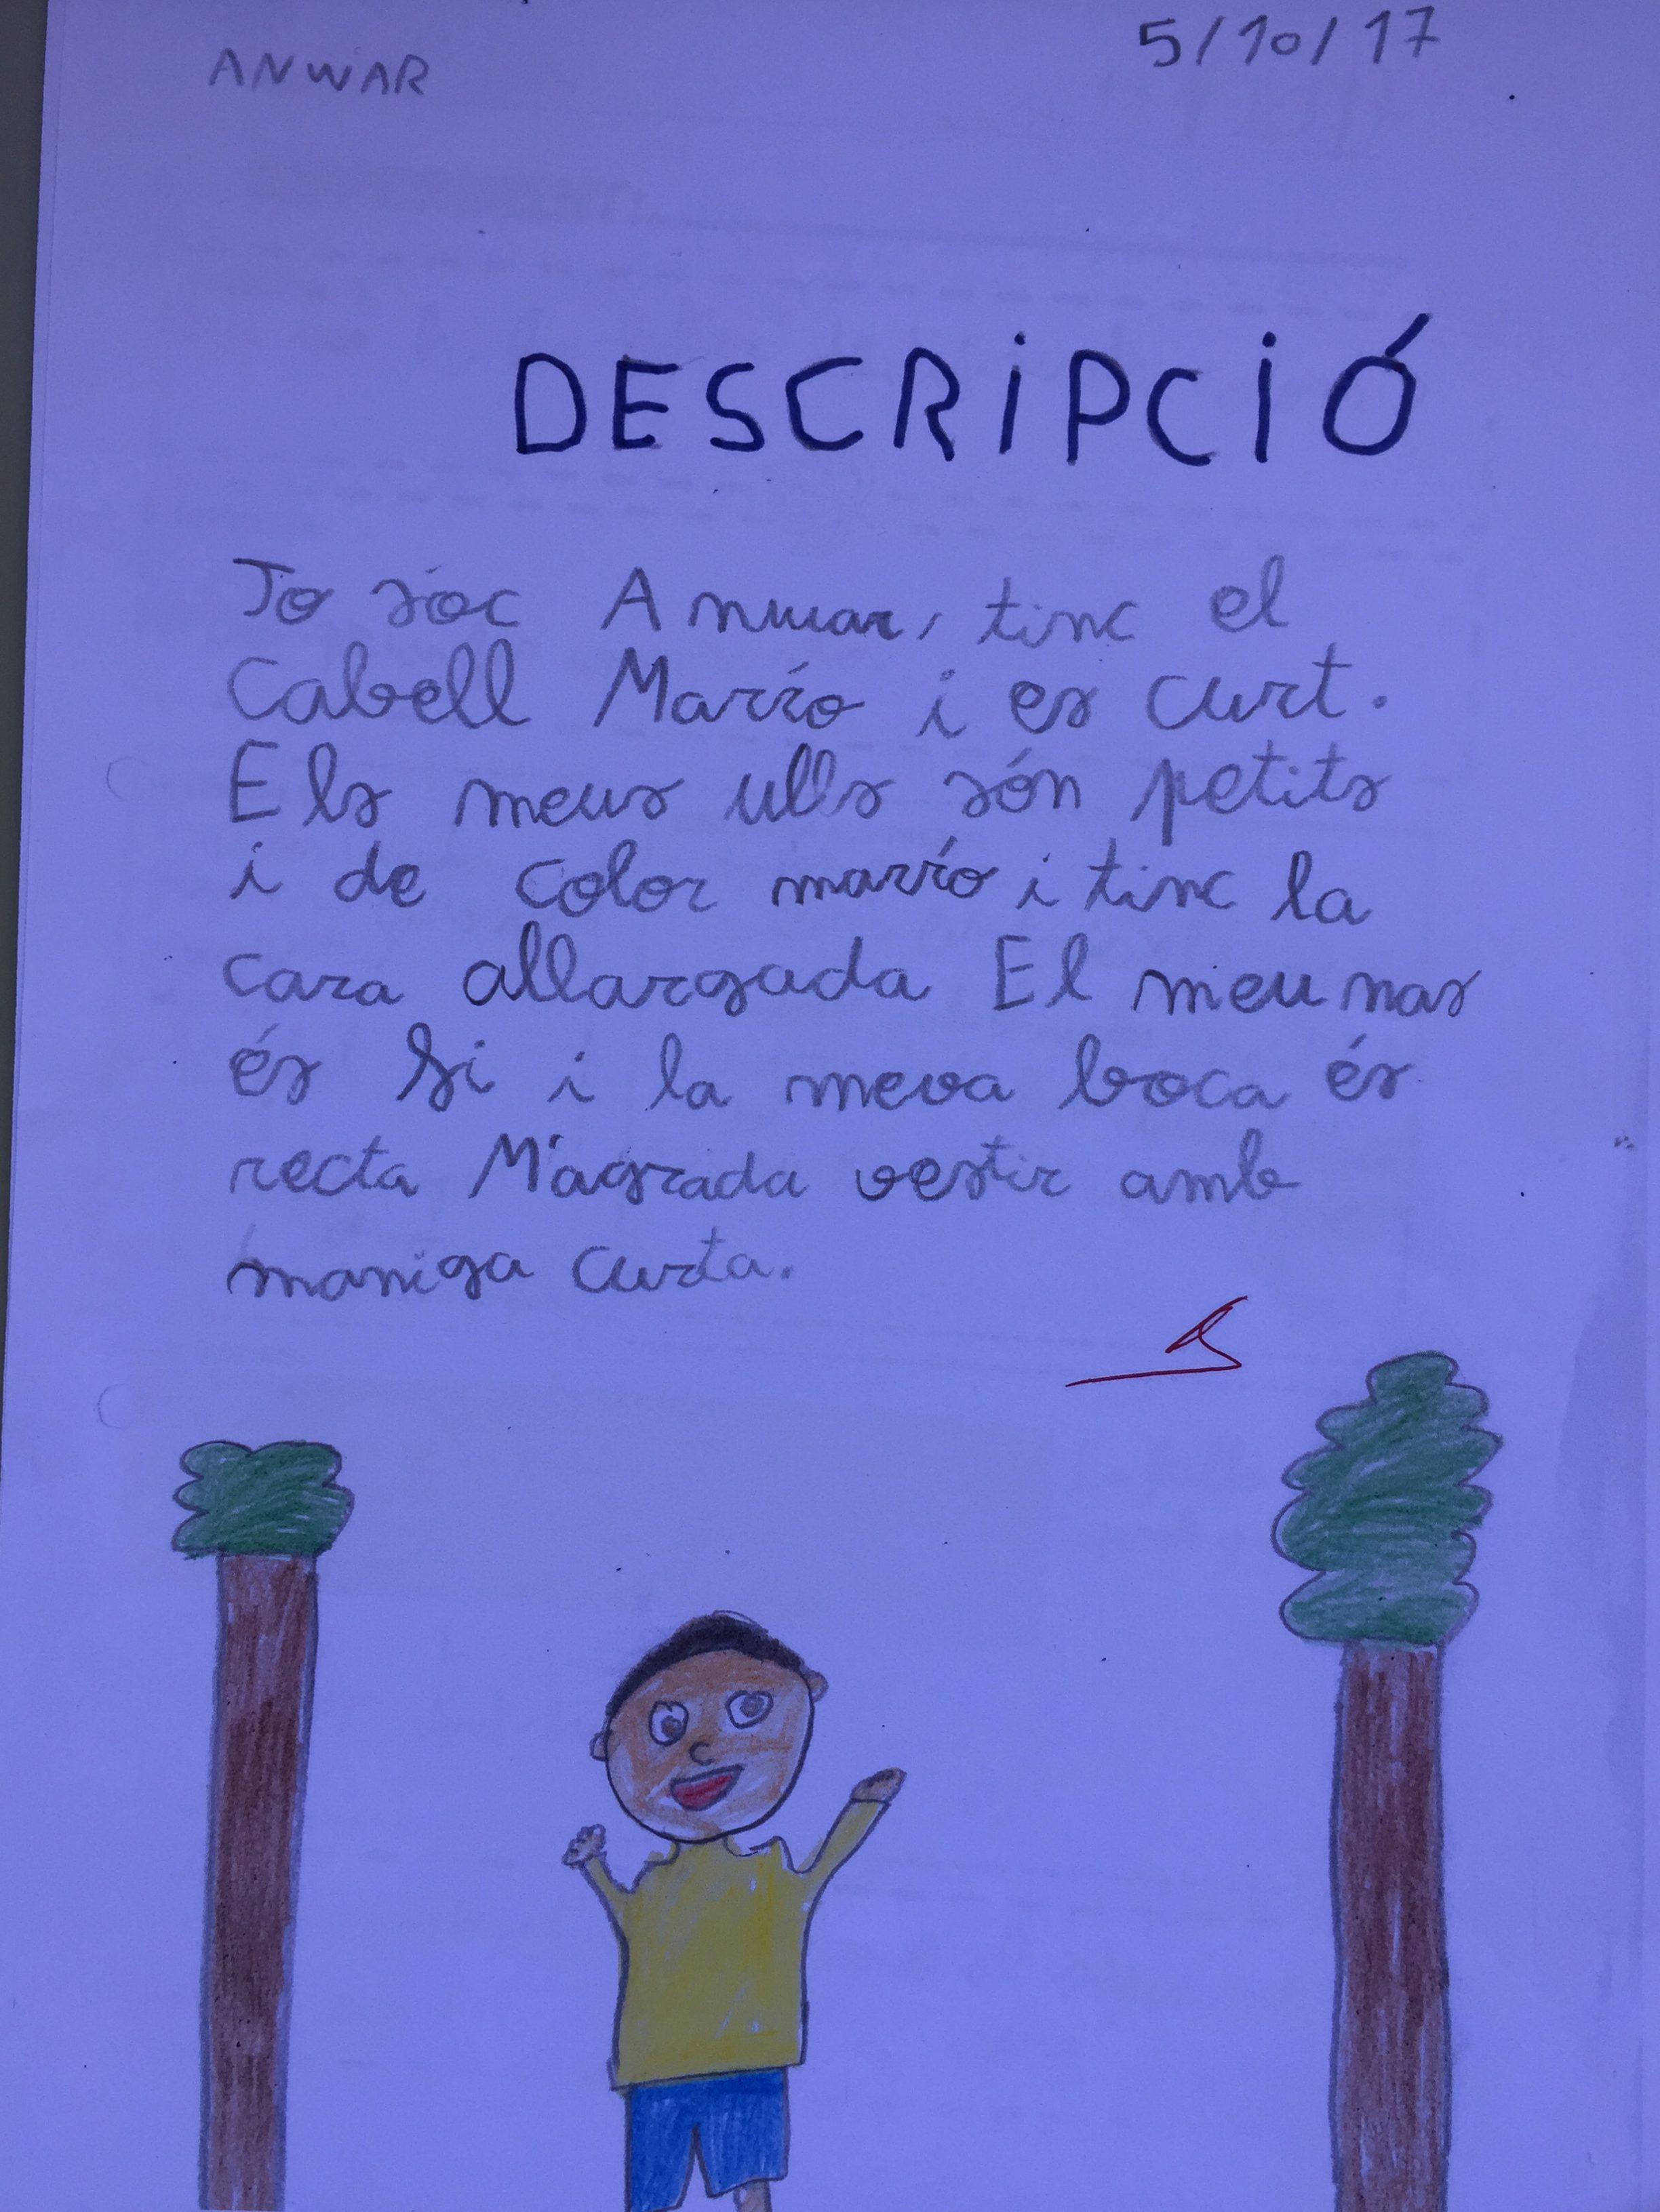 ANWAR 5/10/17
DESCRiPCiÓ
Jo sóc Anwar, tinc el
Cabell Marró i es curt.
Els meus ulls són petits
i de color marró i tinc la
cara allargada El meu nas
és fi i la meva boca és
recta M'agrada vestir amb
maniga curta.